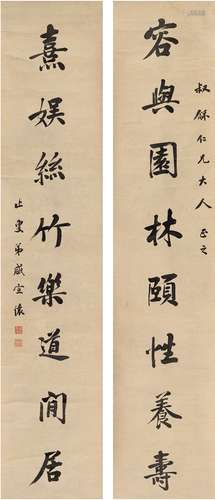 叔穌仁兄大人正之
容與園林頤性養壽
熹娱絲竹樂道閒居
止叟弟盛宣懷